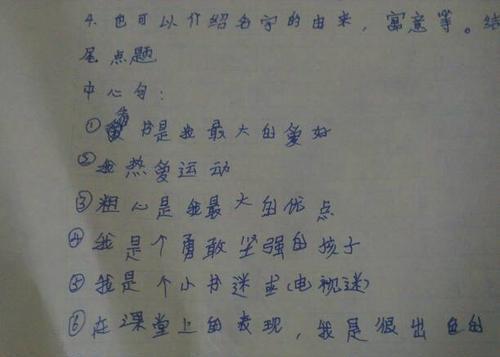 4. 也可以介绍名字的由来，寓意等。结
尾点题
中心句：
①看书是我最大的爱好
②我热爱运动
③粗心是我最大的优点
④我是个勇敢坚强的孩子
⑤我是个小书迷或(电视迷)
⑥在课堂上的表现，我是很出色的